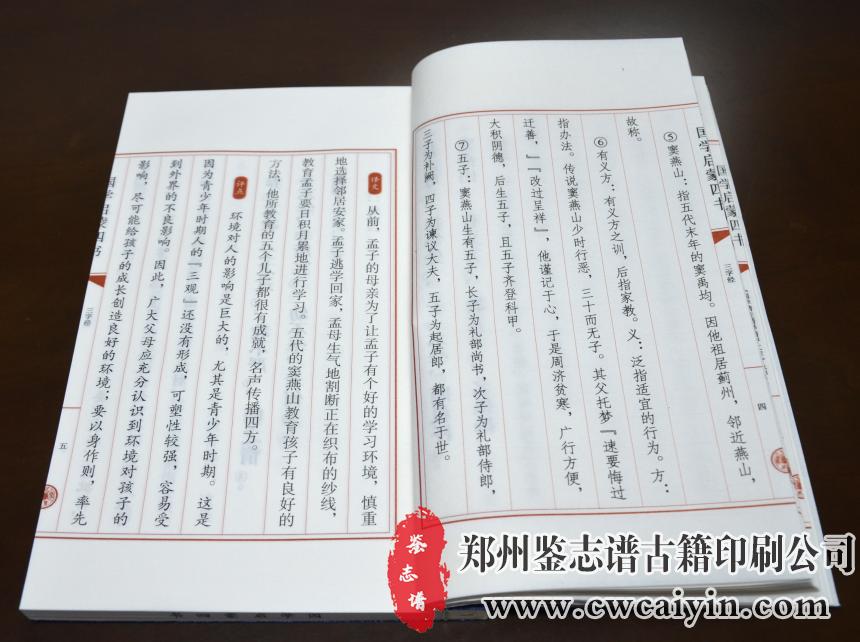 国学启蒙四书
三字经
四
⑤窦燕山：指五代末年的窦禹均。因他祖居蓟州，邻近燕山，
故称。
⑥有义方：有义方之训，后指家教。义：泛指适宜的行为。方：
指办法。传说窦燕山少时行恶，三十而无子。其父托梦『速要悔过
迁善，』『改过呈祥』，他谨记于心，于是周济贫寒，广行方便，
大积阴德，后生五子，且五子齐登科甲。
⑦五子：窦燕山生有五子，长子为礼部尚书，次子为礼部侍郎，
三子为补阙，四子为谏议大夫，五子为起居郎，都有名于世。
译文
从前，孟子的母亲为了让孟子有个好的学习环境，慎重
地选择邻居安家。孟子逃学回家，孟母生气地割断正在织布的纱线，
教育孟子要日积月累地进行学习。五代的窦燕山教育孩子有良好的
方法，他所教育的五个儿子都很有成就，名声传播四方。
评点
环境对人的影响是巨大的，尤其是青少年时期。这是
因为青少年时期人的『三观』还没有形成，可塑性较强，容易受
到外界的不良影响。因此，广大父母应充分认识到环境对孩子的
影响，尽可能给孩子的成长创造良好的环境；要以身作则，率先
国学启蒙四书
三字经
五
鉴志谱
郑州鉴志谱古籍印刷公司
www.cwcaiyin.com